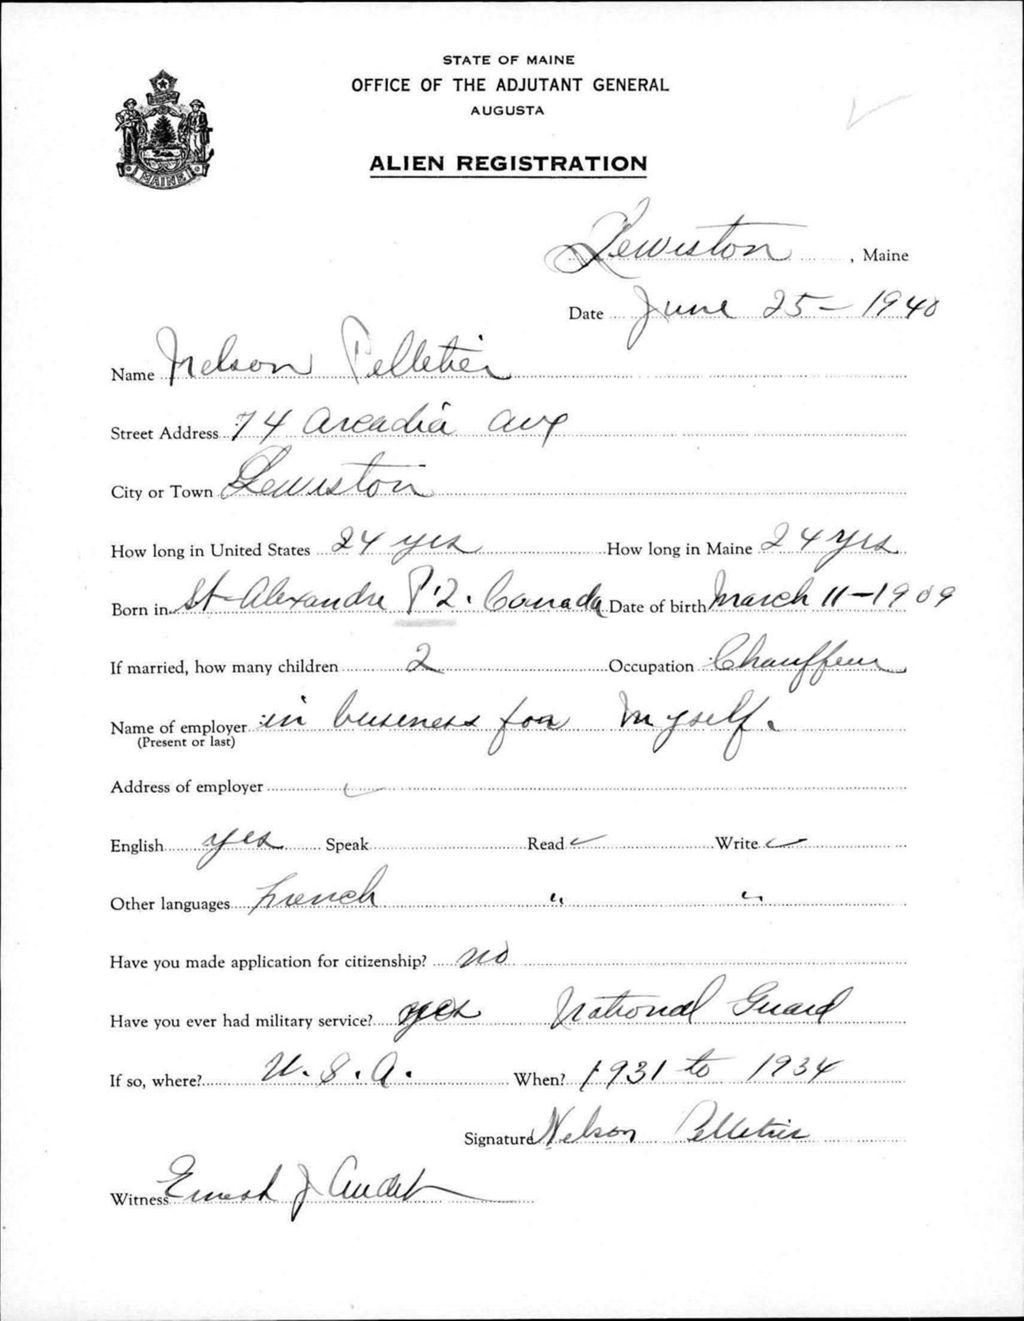 STATE OF MAINE
OFFICE OF THE ADJUTANT GENERAL
AUGUSTA
ALIEN REGISTRATION
MAINE
Lewiston, Maine
Date June 25 - 1940
Name Nelson Pelletier
Street Address 74 Arcadia Ave
City or Town Lewiston
How long in United States 24 yrs How long in Maine 24 yrs
Born in St Alexandre P.Q. Canada Date of birth March 11 - 1909
If married, how many children 2 Occupation Chauffeur
Name of employer in business for myself.
(Present or last)
Address of employer
English yes Speak Read ✓ Write ✓
Other languages French " "
Have you made application for citizenship? no
Have you ever had military service? yes National Guard
If so, where? U.S.A. When? 1931 to 1934
Signature Nelson Pelletier
Witness Ernest J Audet